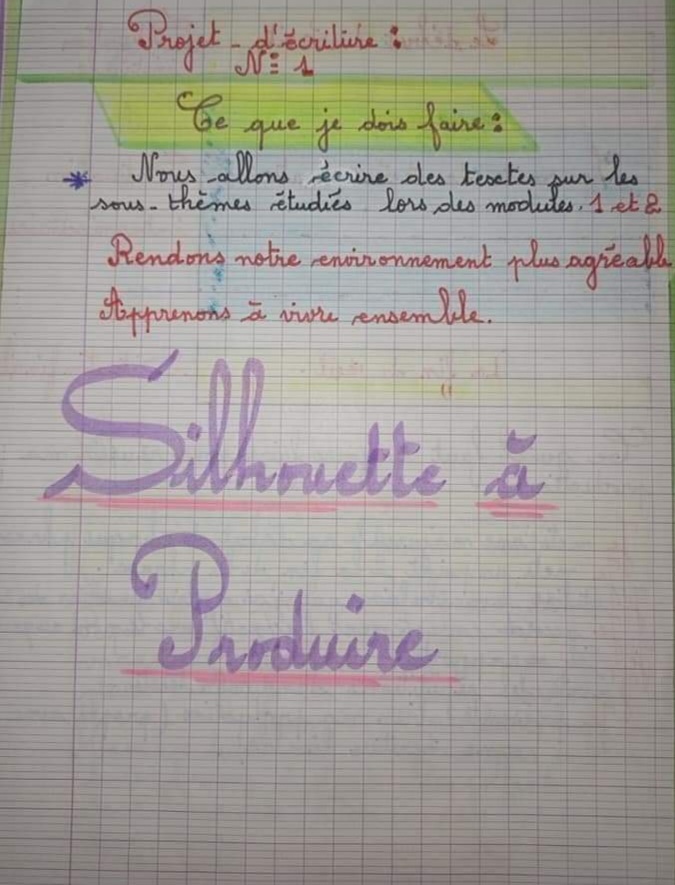 Projet d'écriture :
N° 1
Ce que je dois faire :
* Nous allons écrire des textes sur les
sous-thèmes étudiés lors des modules. 1 et 2
Rendons notre environnement plus agréable
Apprenons à vivre ensemble.
Silhouette à
Produire